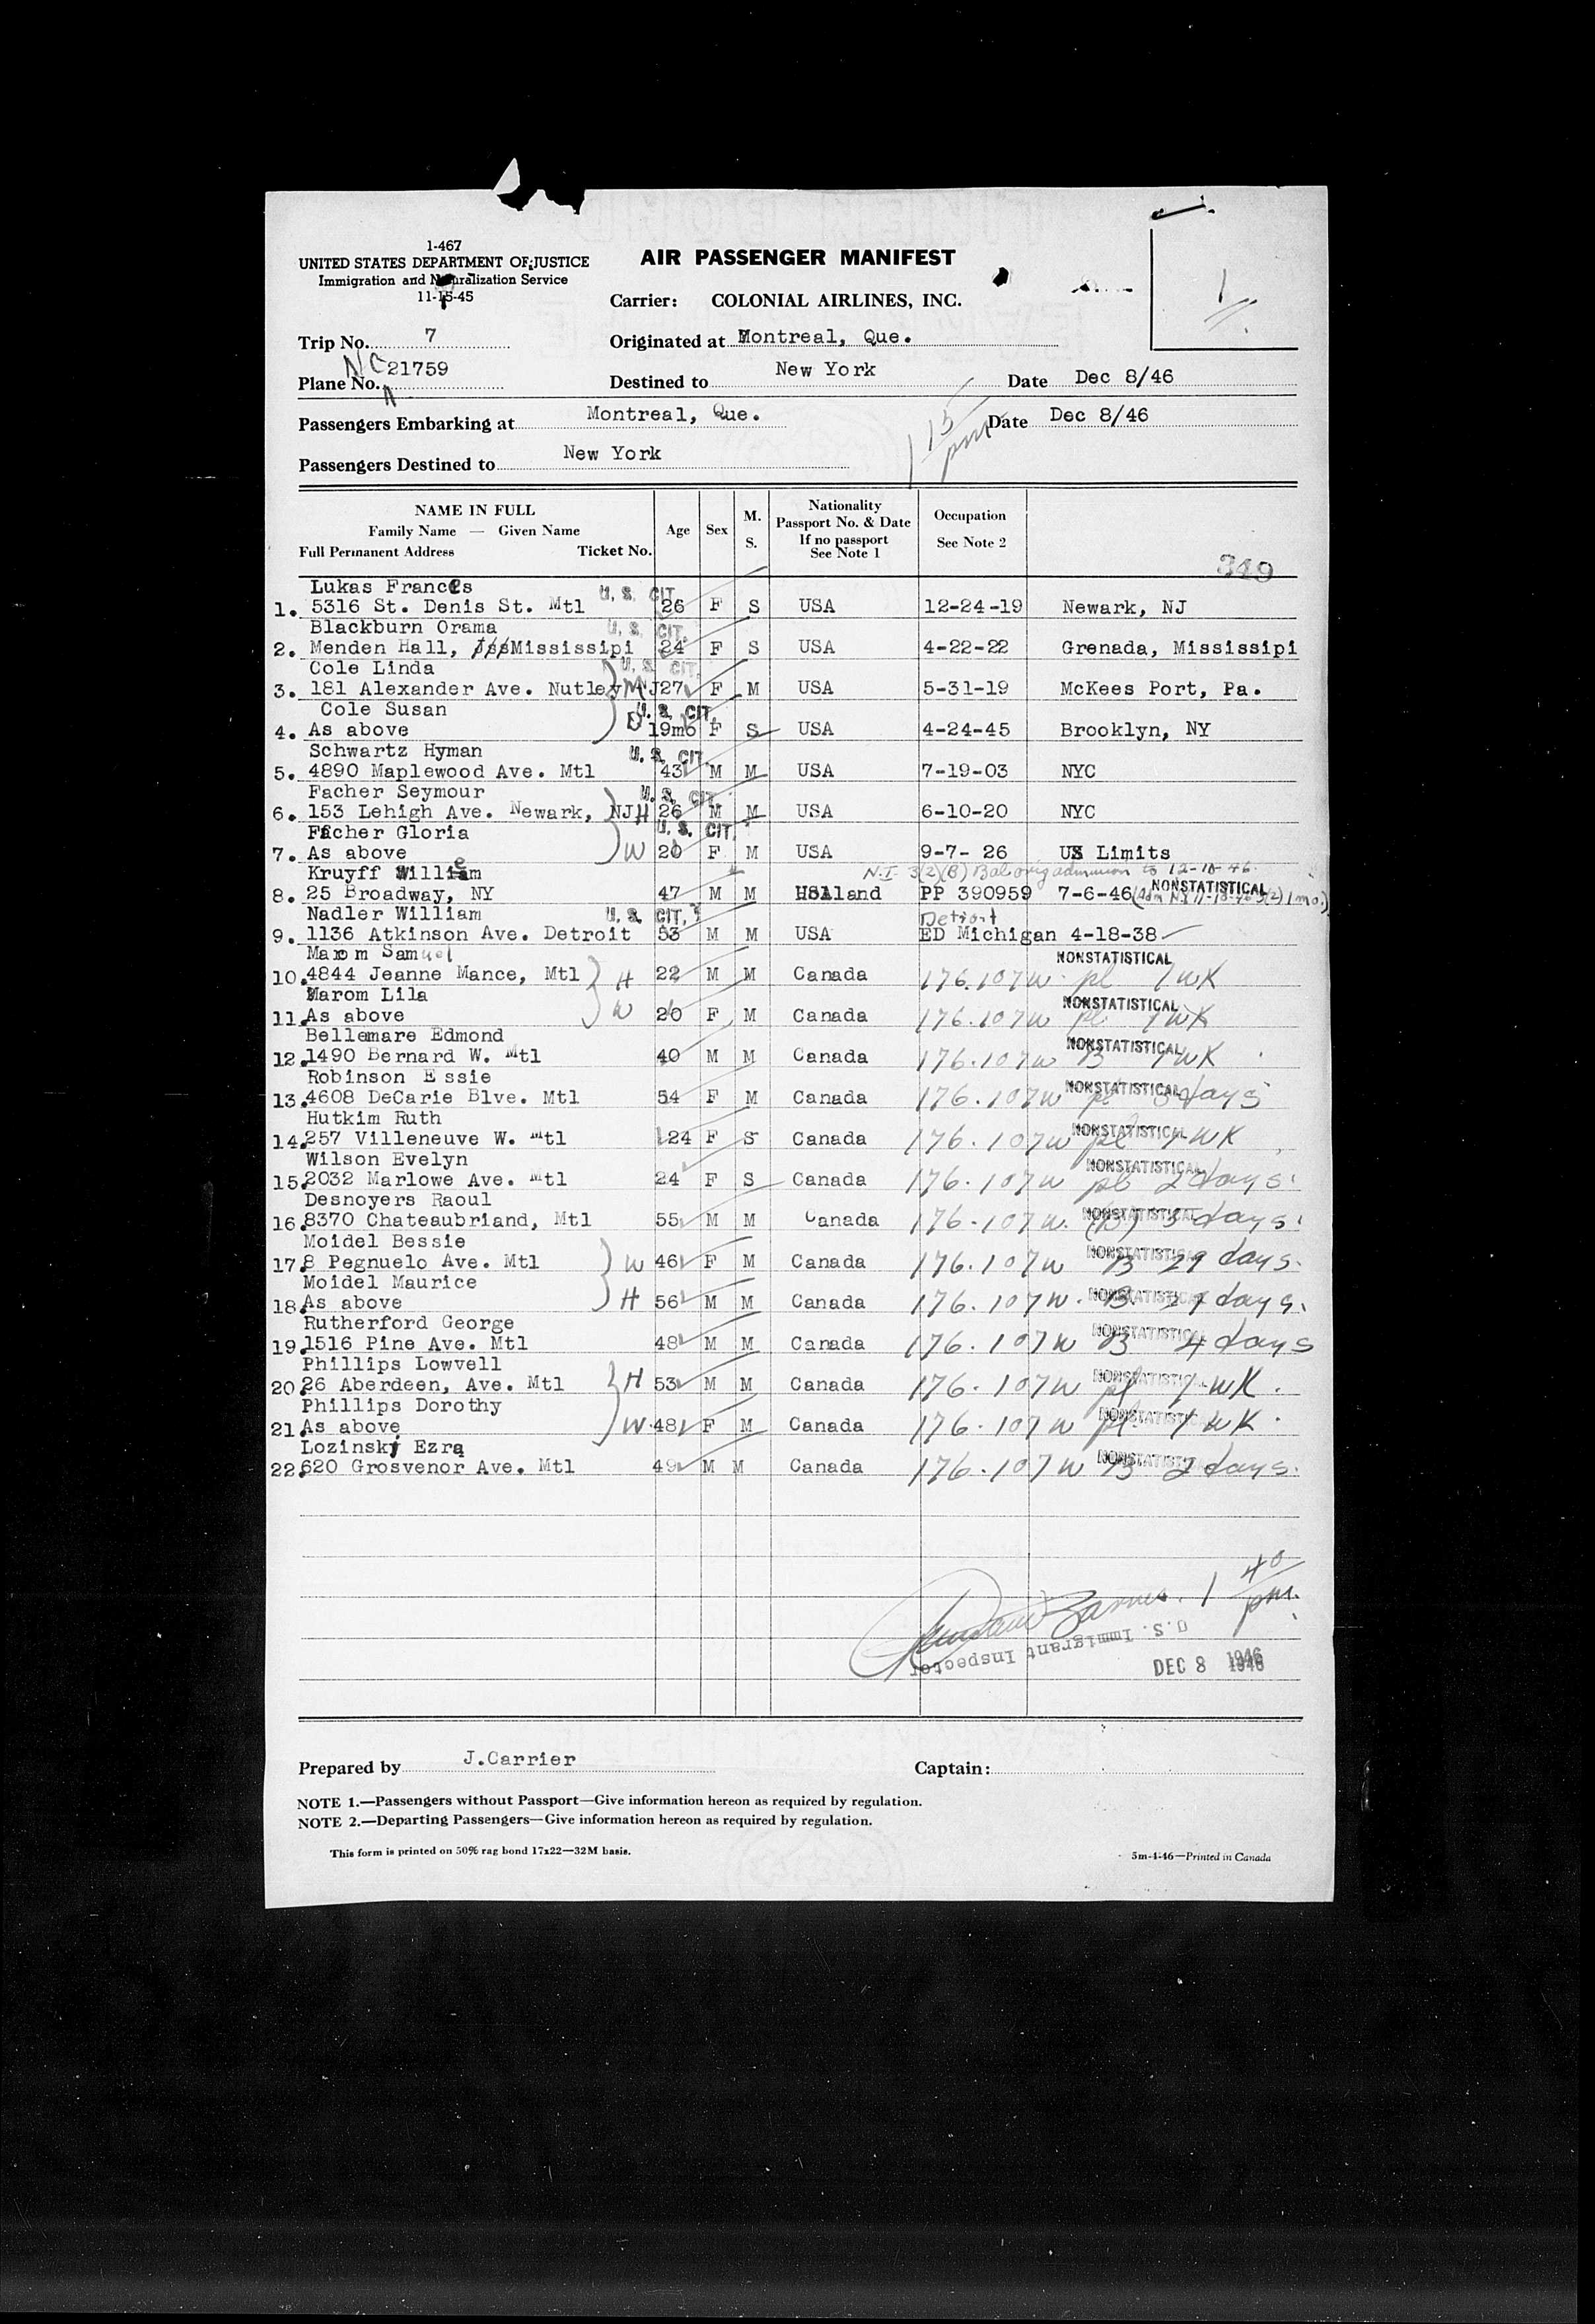 1-467
UNITED STATES DEPARTMENT OF JUSTICE
Immigration and Naturalization Service
11-15-45
AIR PASSENGER MANIFEST
Carrier: COLONIAL AIRLINES, INC.
1
Trip No. 7
Originated at Montreal, Que.
Plane No. NC 21759
Destined to New York Date Dec 8/46
Passengers Embarking at Montreal, Que. Date Dec 8/46
1 15 pm
Passengers Destined to New York
NAME IN FULL
Family Name — Given Name
Full Permanent Address Ticket No.
Age Sex M. S.
Nationality
Passport No. & Date
If no passport
See Note 1
Occupation
See Note 2
349
Lukas Frances U. S. CIT.
1. 5316 St. Denis St. Mtl 26 F S USA 12-24-19 Newark, NJ
Blackburn Orama U. S. CIT.
2. Menden Hall, Mississipi 24 F S USA 4-22-22 Grenada, Mississipi
Cole Linda U. S. CIT.
3. 181 Alexander Ave. Nutley NJ M 27 F M USA 5-31-19 McKees Port, Pa.
Cole Susan U. S. CIT.
4. As above D 19mo F S USA 4-24-45 Brooklyn, NY
Schwartz Hyman U. S. CIT.
5. 4890 Maplewood Ave. Mtl 43 M M USA 7-19-03 NYC
Facher Seymour U. S. CIT.
6. 153 Lehigh Ave. Newark, NJ H 26 M M USA 6-10-20 NYC
Facher Gloria U. S. CIT.
7. As above W 20 F M USA 9-7- 26 US Limits
Kruyff Willem N.I. 3(2)(B) Bal orig admission to 12-18-46.
8. 25 Broadway, NY 47 M M Holland PP 390959 7-6-46 NONSTATISTICAL
Nadler William U. S. CIT. Detroit
9. 1136 Atkinson Ave. Detroit 53 M M USA ED Michigan 4-18-38
Marom Samuel NONSTATISTICAL
10. 4844 Jeanne Mance, Mtl H 22 M M Canada 176.107w pl 1 WK
Marom Lila NONSTATISTICAL
11. As above W 20 F M Canada 176.107w pl 1 WK
Bellemare Edmond NONSTATISTICAL
12. 1490 Bernard W. Mtl 40 M M Canada 176.107w B 1 WK
Robinson Essie NONSTATISTICAL
13. 4608 DeCarie Blve. Mtl 54 F M Canada 176.107w pl days
Hutkim Ruth NONSTATISTICAL
14. 257 Villeneuve W. Mtl 24 F S Canada 176.107w pl 1 WK
Wilson Evelyn NONSTATISTICAL
15. 2032 Marlowe Ave. Mtl 24 F S Canada 176.107w pl 2 days.
Desnoyers Raoul NONSTATISTICAL
16. 8370 Chateaubriand, Mtl 55 M M Canada 176.107w. (B) 3 days.
Moidel Bessie NONSTATISTICAL
17. 8 Pegnuelo Ave. Mtl W 46 F M Canada 176.107w B 29 days.
Moidel Maurice NONSTATISTICAL
18. As above H 56 M M Canada 176.107w. B. 29 days.
Rutherford George NONSTATISTICAL
19. 1516 Pine Ave. Mtl 48 M M Canada 176.107w B 4 days
Phillips Lowvell NONSTATISTICAL
20. 26 Aberdeen, Ave. Mtl H 53 M M Canada 176.107w pl 1 WK.
Phillips Dorothy NONSTATISTICAL
21. As above W. 48 F M Canada 176.107w pl. 1 WK.
Lozinski Ezra NONSTATISTICAL
22. 620 Grosvenor Ave. Mtl 49 M M Canada 176.107w B 2 days.
1 40 pm.
U.S. Immigrant Inspector
DEC 8 1946
Prepared by J.Carrier
Captain:
NOTE 1.—Passengers without Passport—Give information hereon as required by regulation.
NOTE 2.—Departing Passengers—Give information hereon as required by regulation.
This form is printed on 50% rag bond 17x22—32M basis.
5m-4-46—Printed in Canada